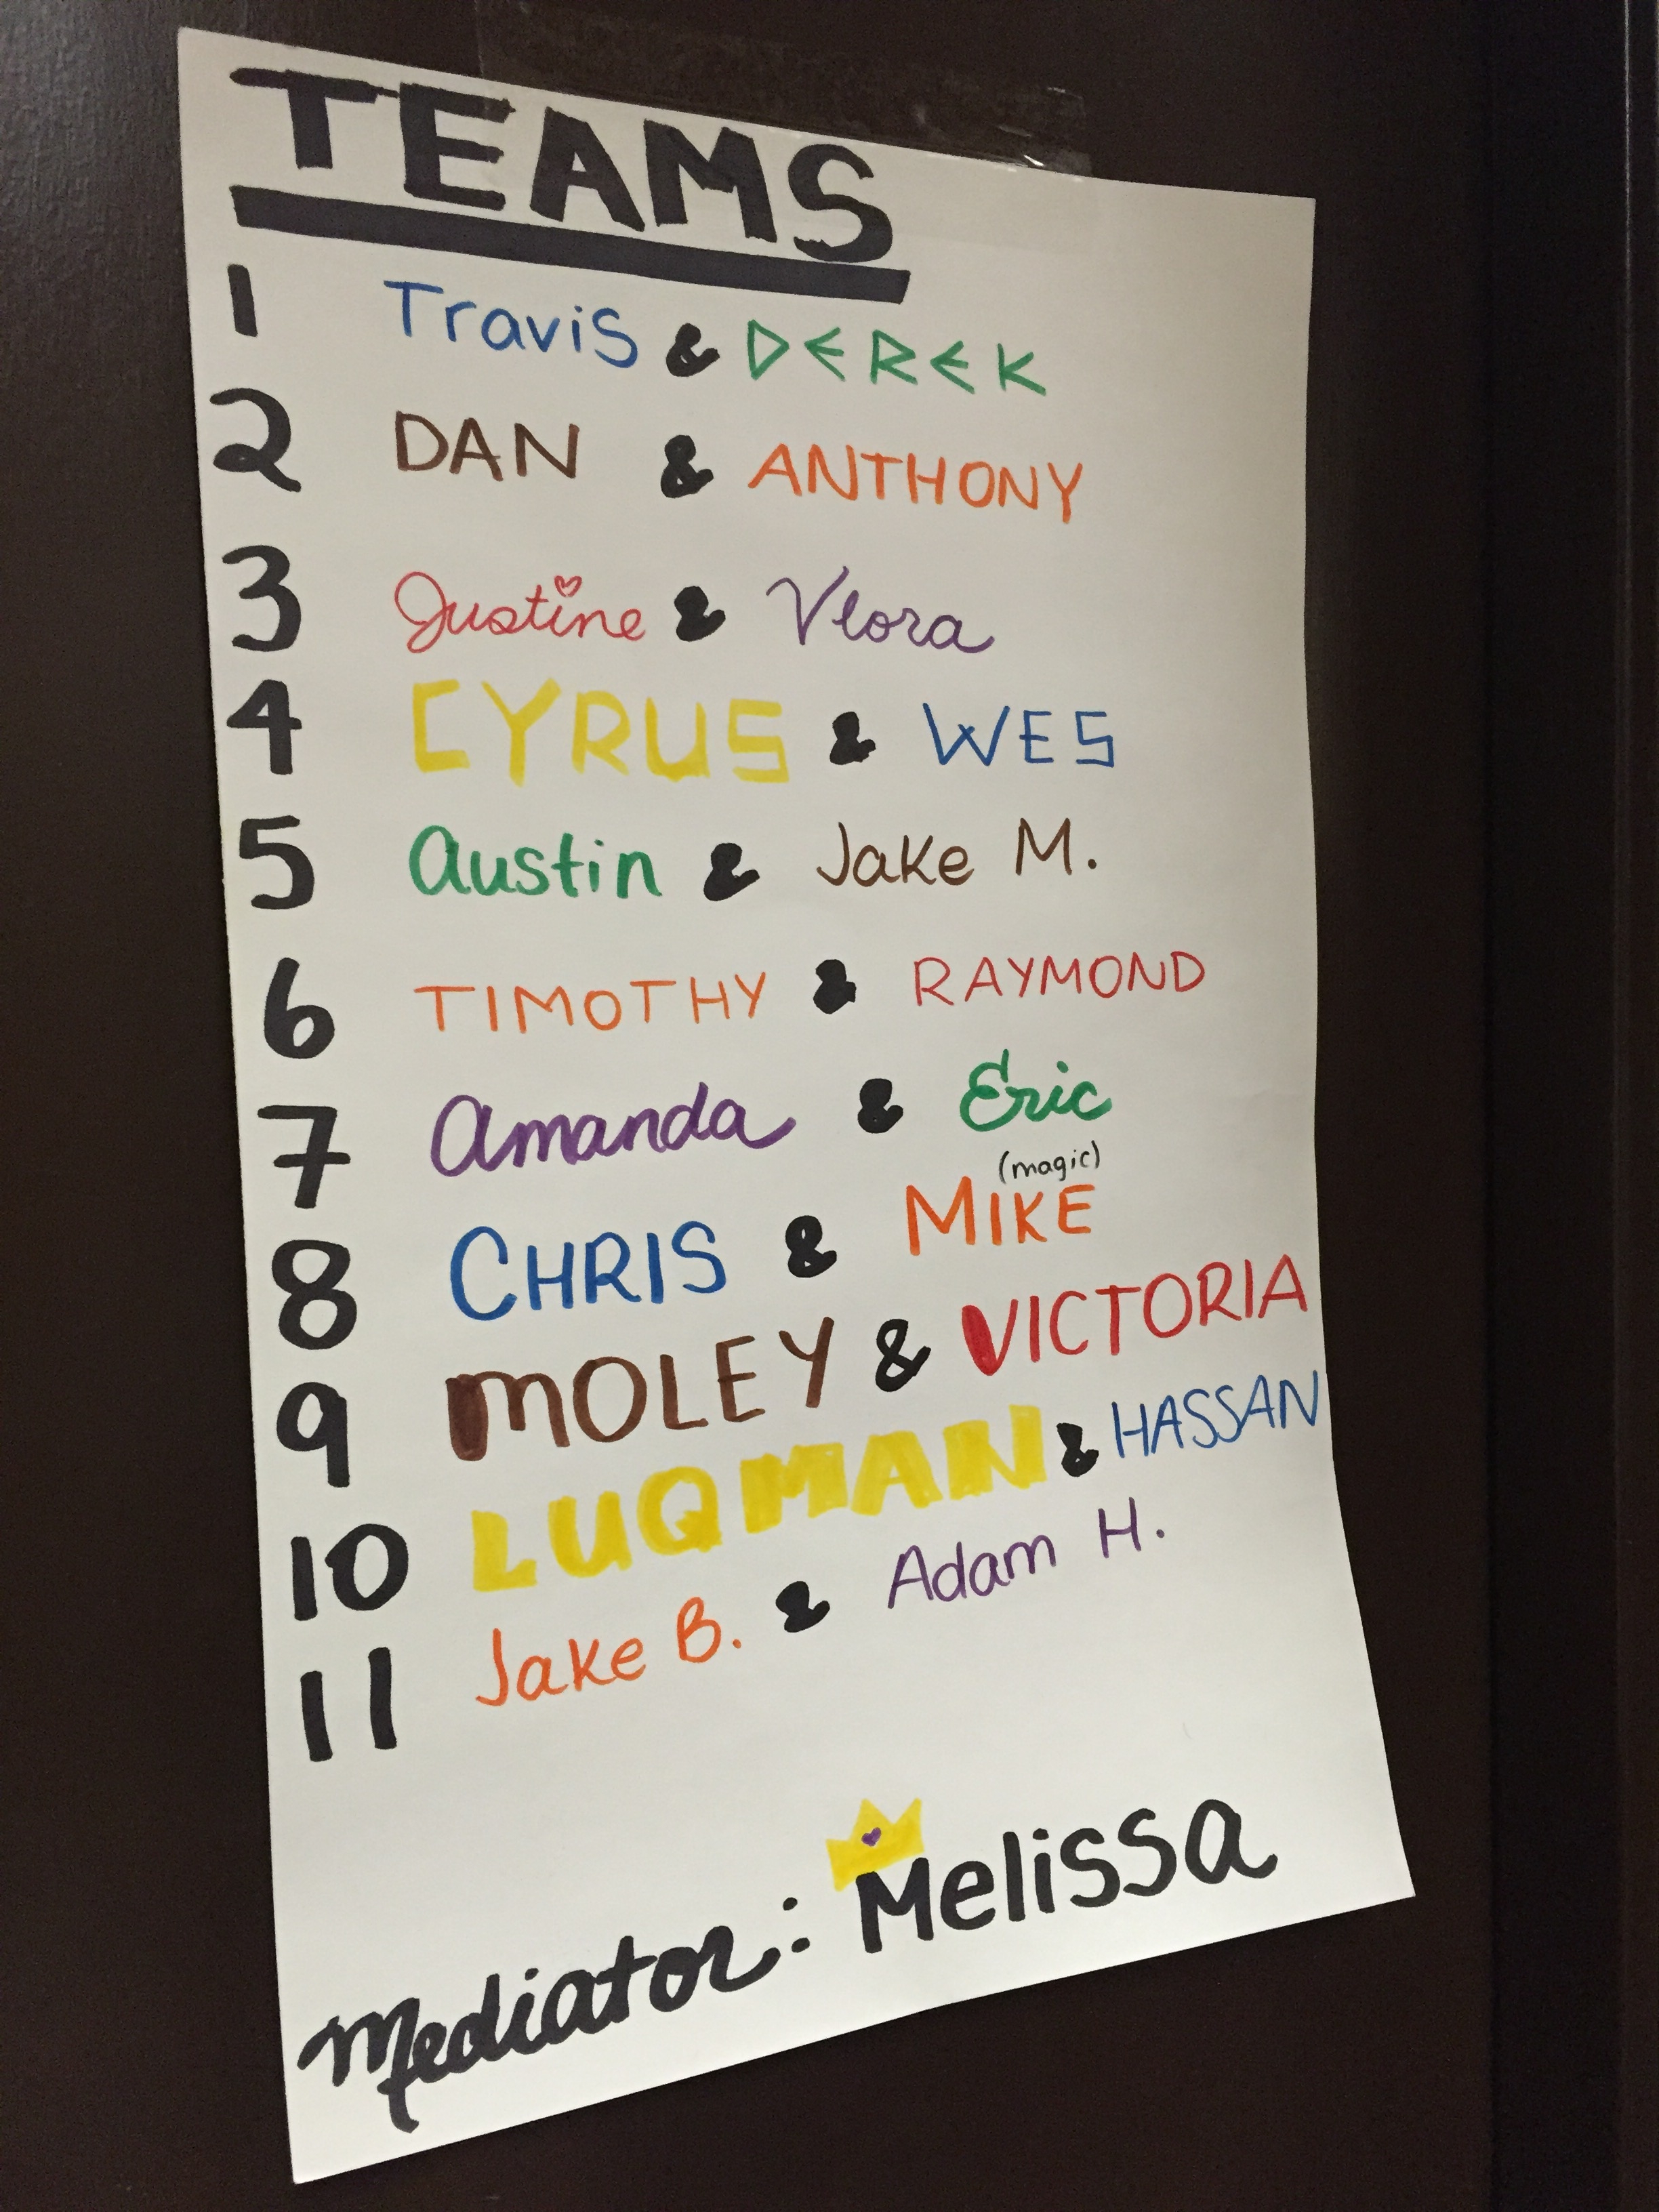 TEAMS
1 Travis & DEREK
2 DAN & ANTHONY
3 Justine & Vlora
4 CYRUS & WES
5 Austin & Jake M.
6 TIMOTHY & RAYMOND
7 Amanda & Eric
(magic)
8 CHRIS & MIKE
9 MOLEY & VICTORIA
10 LUQMAN & HASSAN
11 Jake B. & Adam H.
Mediator: Melissa